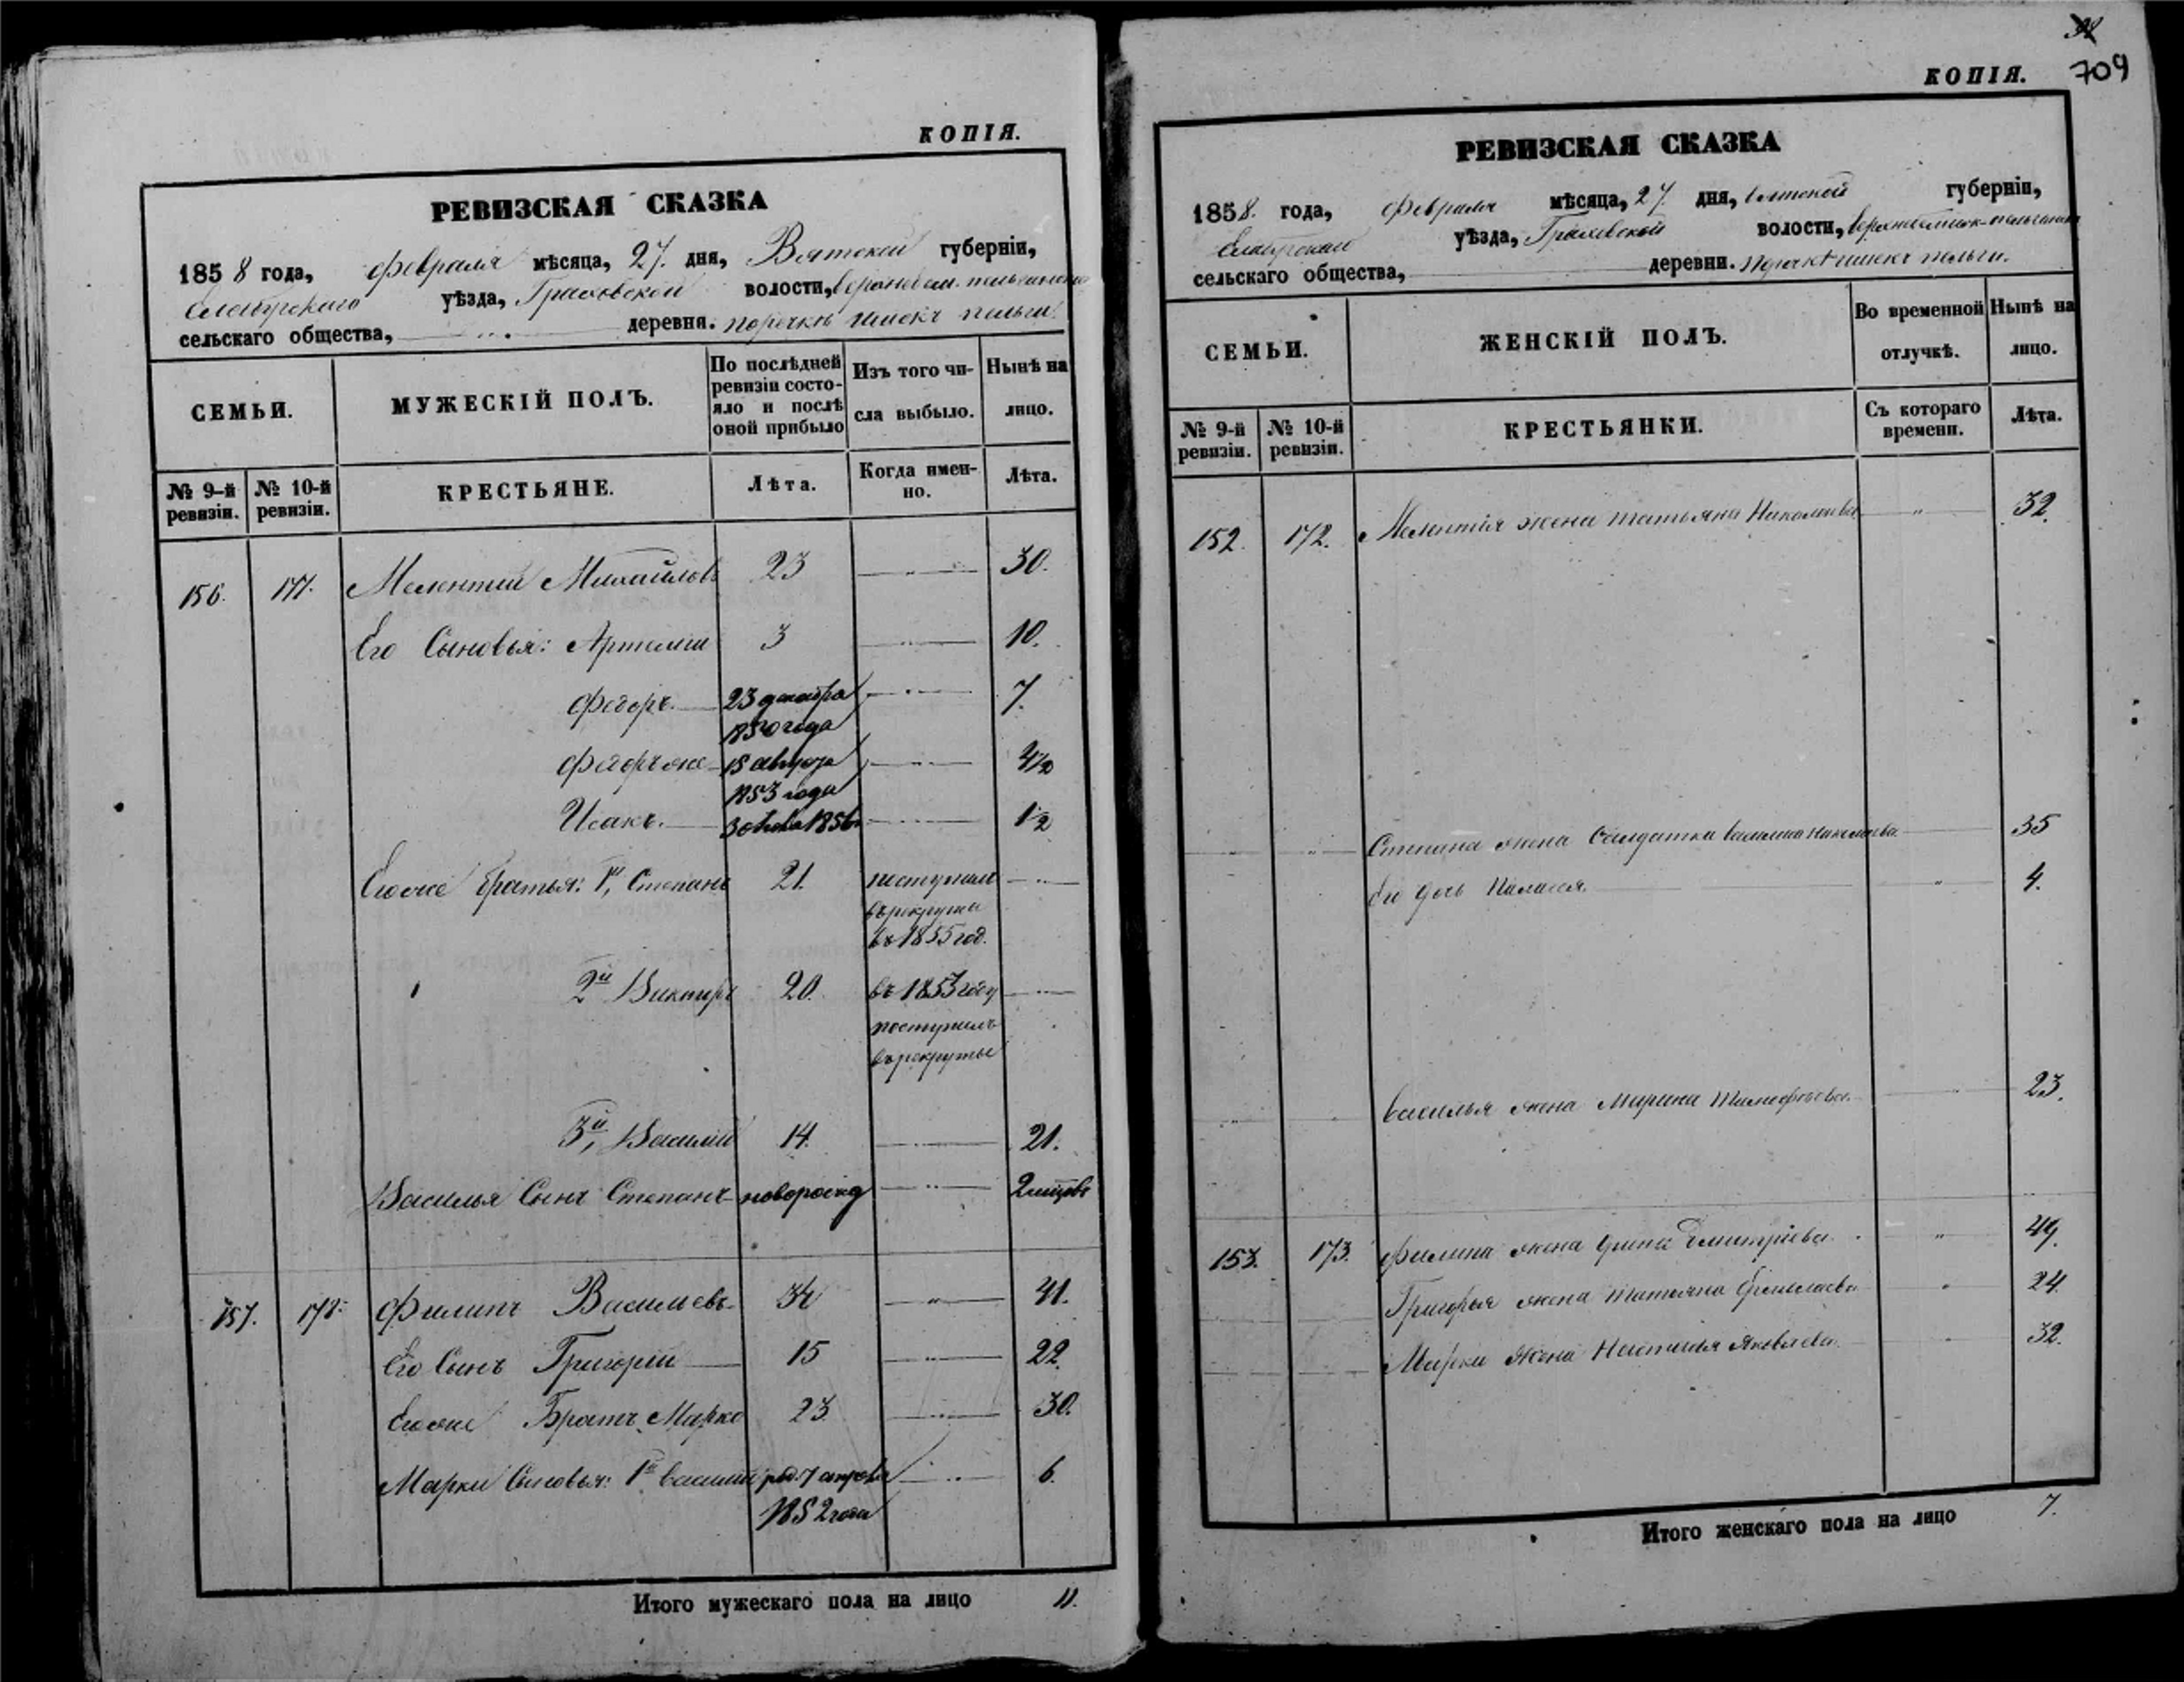 КОПІЯ.
РЕВИЗСКАЯ СКАЗКА
1858 года, февраля мѣсяца, 27. дня, Вятской губерніи,
Елабугскаго уѣзда, Граховской волости,
сельскаго общества, деревня.
СЕМЬИ.
МУЖЕСКІЙ ПОЛЪ.
По послѣдней ревизіи состояло и послѣ оной прибыло
Изъ того числа выбыло.
Нынѣ на лицо.
№ 9-й ревизіи.
№ 10-й ревизіи.
КРЕСТЬЯНЕ.
Лѣта.
Когда именно.
Лѣта.
156. 171. Мелентий Михайловъ 23 30.
Его Сыновья: Артемий 3 10.
Федоръ. 23 декабря 7.
1850 года
Федоръ же 15 августа 4½
1853 года
Исакъ. 1856 1½
Его же братья: 1й, Степанъ 21. поступилъ
въ рекруты
въ 1855 год.
2й Викторъ 20. въ 1853 году
поступилъ
въ рекруты
3й, Василий 14. 21.
Василья Сынъ Степанъ новорожд 2 мцовъ
157. 172. Филипъ Васильевъ 34 41.
Его Сынъ Григорий 15 22.
Его же Братъ Марко 23. 30.
Марки Сыновья: 1й Василий род. 7 апреля 6.
1852 года
Итого мужескаго пола на лицо 11.
38
709
КОПІЯ.
РЕВИЗСКАЯ СКАЗКА
1858. года, февраля мѣсяца, 27. дня, Вятской губерніи,
Елабугскаго уѣзда, Граховской волости,
сельскаго общества, деревни.
СЕМЬИ.
ЖЕНСКІЙ ПОЛЪ.
Во временной отлучкѣ.
Нынѣ на лицо.
№ 9-й ревизіи.
№ 10-й ревизіи.
КРЕСТЬЯНКИ.
Съ котораго времени.
Лѣта.
152. 172. Мелентія жена Татьяна Николаева 32.
Степана жена Солдатка Василиса Николаева 35
Его дочь Паласея. 4.
Василья жена Марина Тимофеева. 23.
153. 173. Филипа жена Ирина Дмитріева. 49.
Григорья жена Татьяна 24.
Марки жена Настасья Яковлева. 32.
Итого женскаго пола на лицо 7.